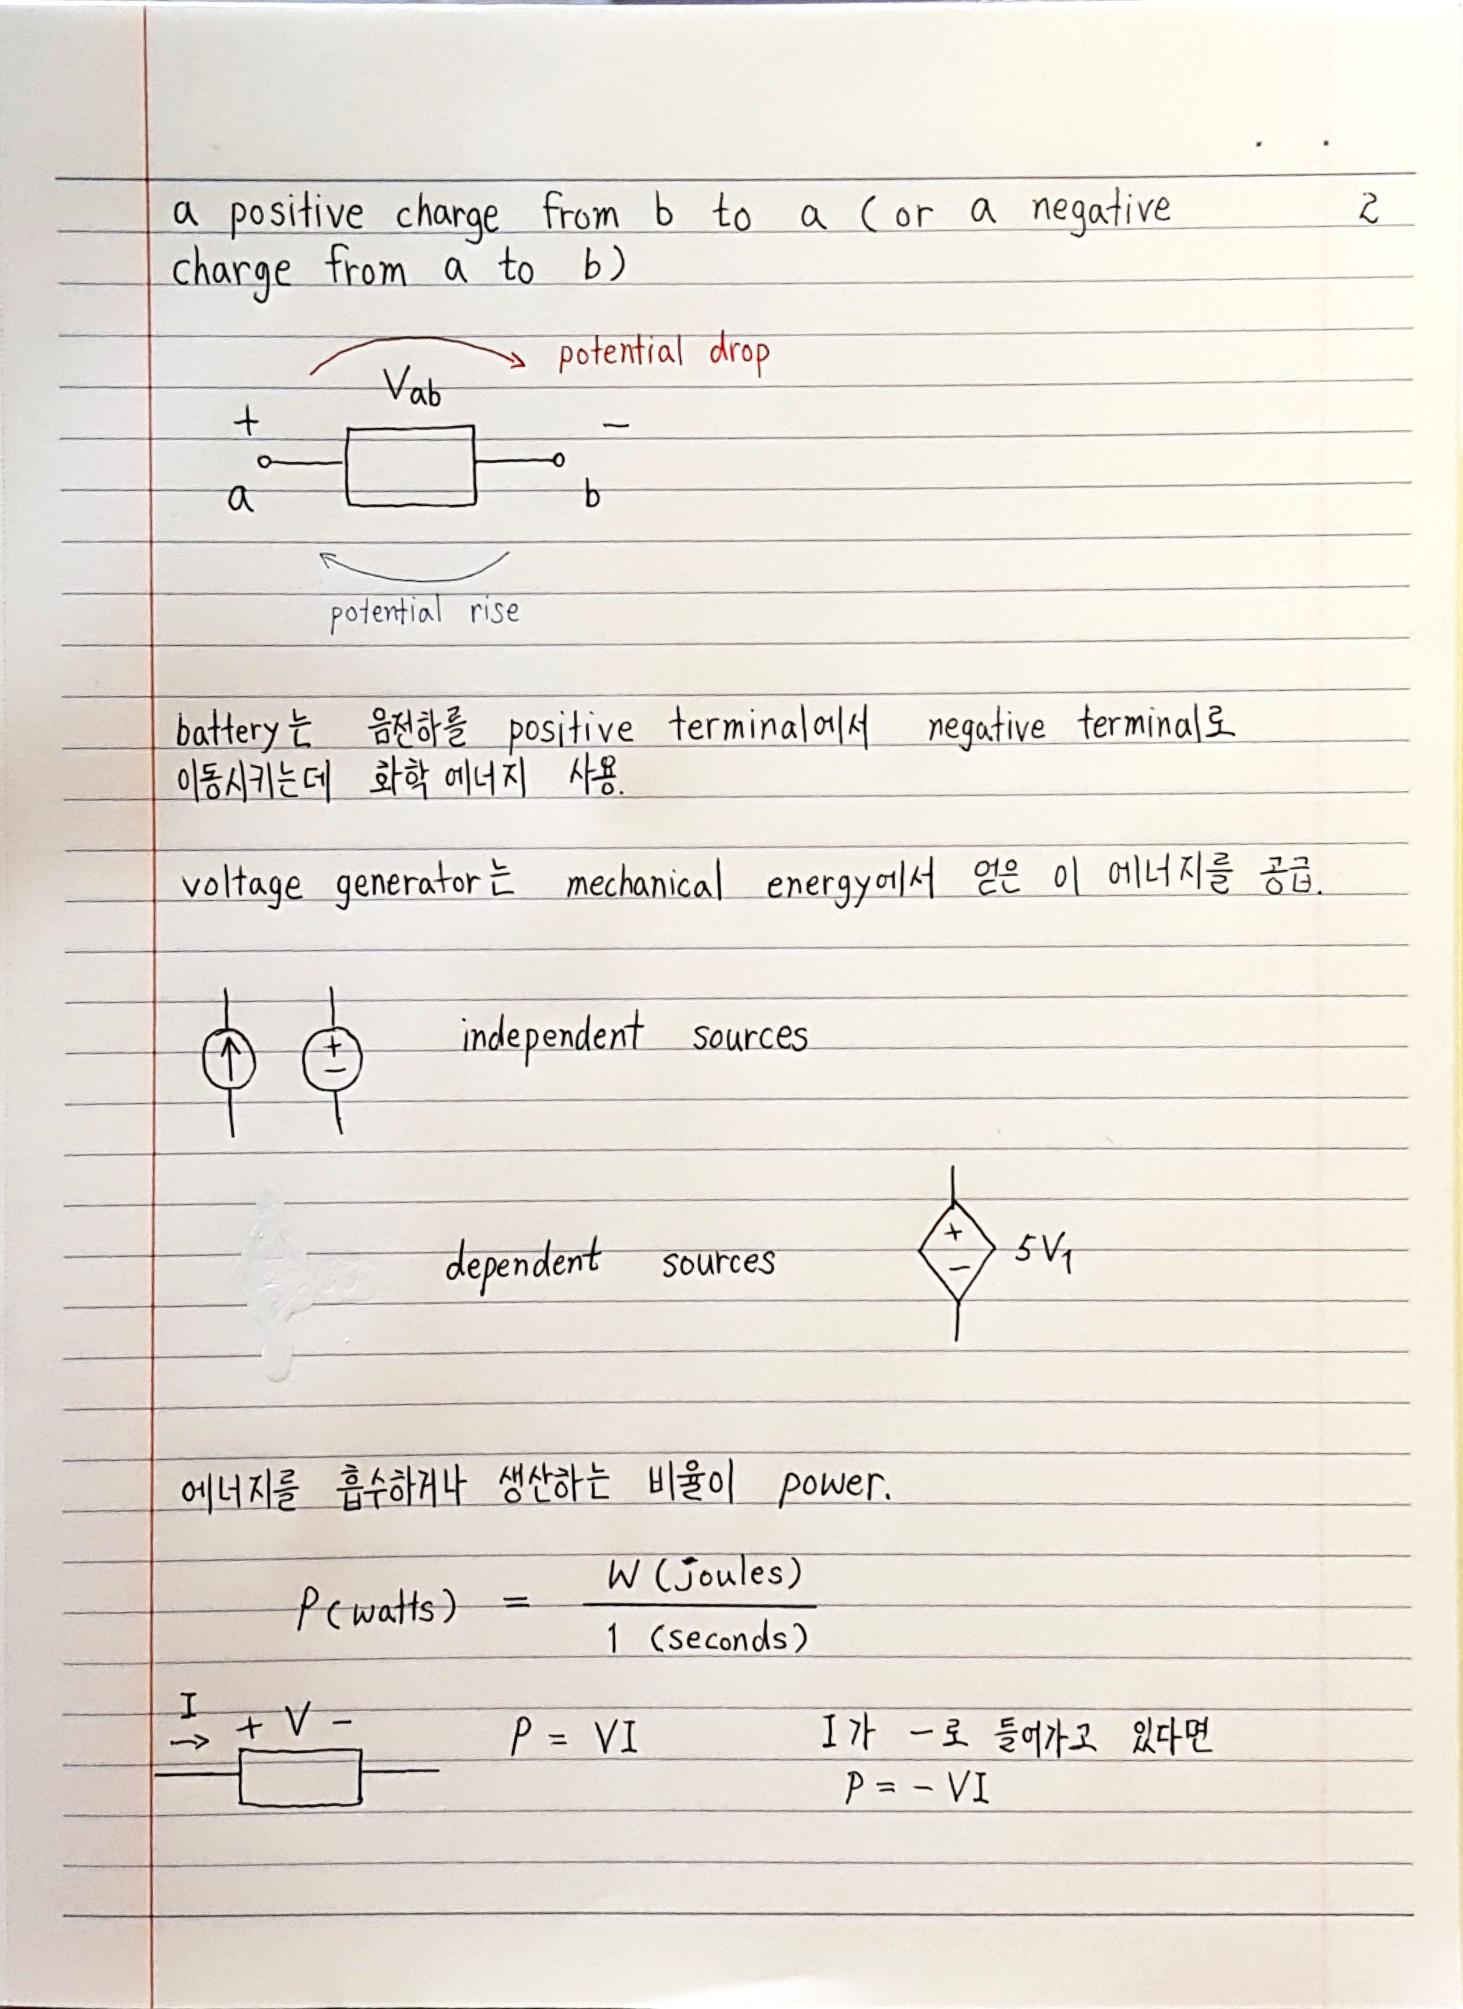 2
a positive charge from b to a (or a negative
charge from a to b)
potential drop
Vab
+ −
a b
potential rise
battery는 음전하를 positive terminal에서 negative terminal로
이동시키는데 화학 에너지 사용.
voltage generator는 mechanical energy에서 얻은 이 에너지를 공급.
+
−
independent sources
+
−
dependent sources 5V1
에너지를 흡수하거나 생산하는 비율이 power.
P(watts) = W (joules)
1 (seconds)
I → + V −
P = VI
I가 −로 들어가고 있다면
P = − VI